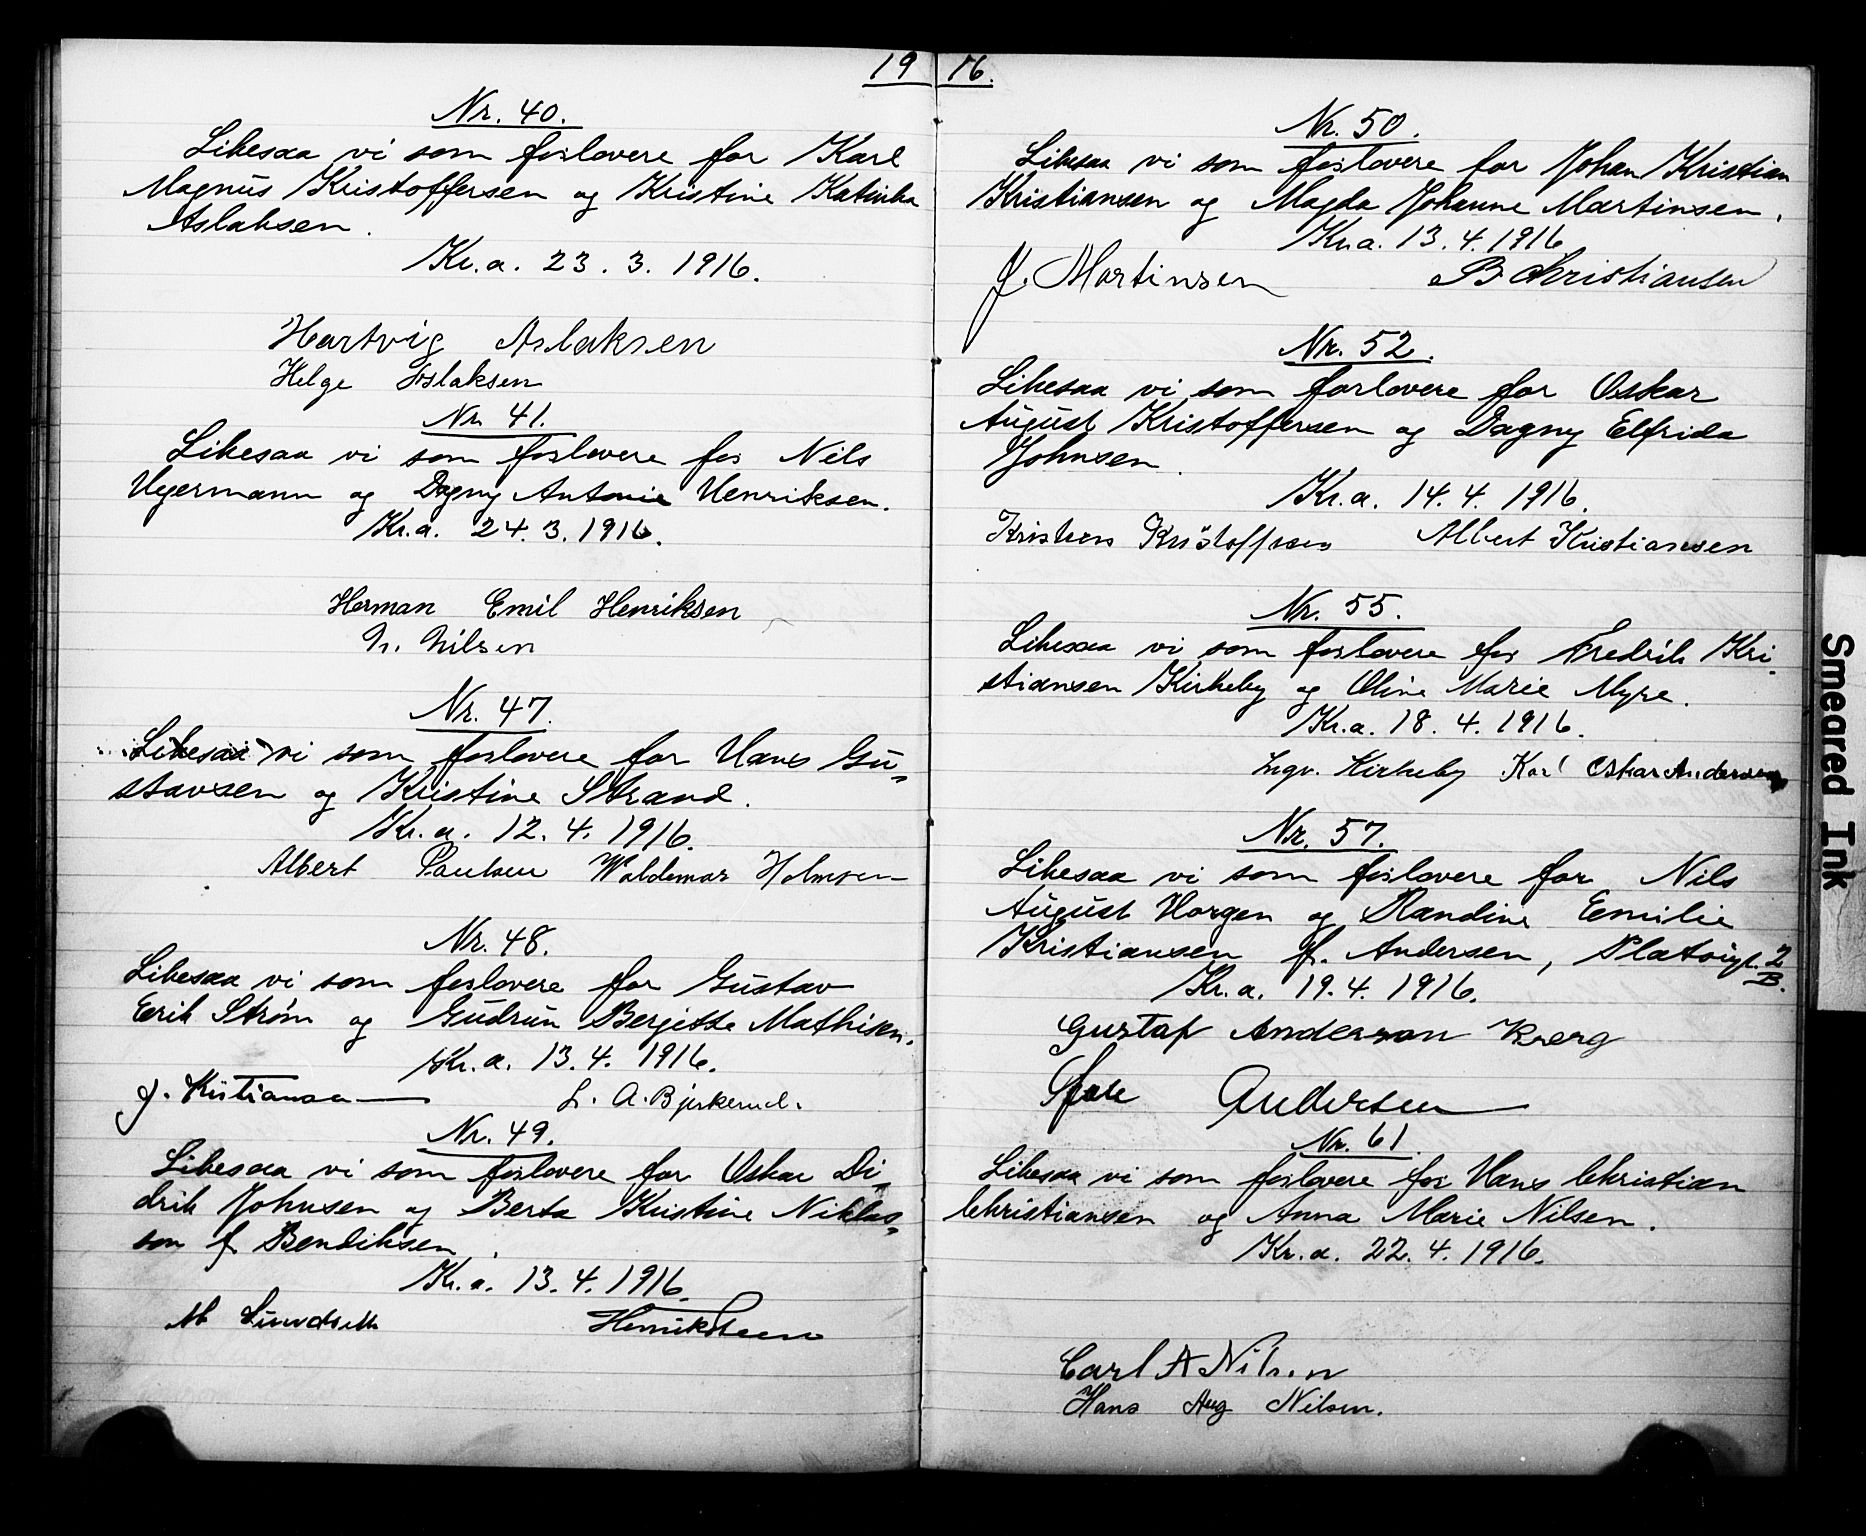 1916.
Nr. 40.
Likesaa vi som forlovere for Karl
Magnus Kristoffersen og Kristine Katinka
Aslaksen.
Kr.a. 23.3.1916.
Hartvig Aslaksen
Helge Aslaksen
Nr. 41.
Likesaa vi som forlovere for Nils
Ugermann og Dagny Antonie Henriksen.
Kr.a. 24.3.1916.
Herman Emil Henriksen
N. Nilsen
Nr. 47.
Likesaa vi som forlovere for Hans Gu-
stavsen og Kristine Strand.
Kr.a. 12.4.1916.
Albert Paulsen Waldemar Holmsen
Nr. 48.
Likesaa vi som forlovere for Gustav
Erik Strøm og Gudrun Bergitte Mathisen.
Kr.a. 13.4.1916.
J. Kristiansen L. A. Bjerkerud.
Nr. 49.
Likesaa vi som forlovere for Oskar Di-
drik Johnsen og Berta Kristine Niklas-
son f. Bendiksen.
Kr.a. 13.4.1916.
M Lundseth Henriksen
Nr. 50.
Likesaa vi som forlovere for Johan Kristian
Kristiansen og Magda Johanne Martinsen.
Kr.a. 13.4.1916.
J. Martinsen B Christiansen
Nr. 52.
Likesaa vi som forlovere for Oskar
August Kristoffersen og Dagny Elfrida
Johnsen.
Kr.a. 14.4.1916.
Kristoffersen Albert Kristiansen
Nr. 55.
Likesaa vi som forlovere for Fredrik Kri-
stiansen Kirkeby og Oline Marie Myre.
Kr.a. 18.4.1916.
Ingv. Kirkeby Karl Oskar Andersen
Nr. 57.
Likesaa vi som forlovere for Nils
August Horgen og Randine Emilie
Kristiansen f. Andersen, Platøugt. 2
B.
Kr.a. 19.4.1916.
Gustaf Anderson Krerg
Andersen
Nr. 61.
Likesaa vi som forlovere for Hans Christian
Christiansen og Anna Marie Nilsen.
Kr.a. 22.4.1916.
Carl A Nilsen
Hans Aug Nilsen.
Smeared Ink